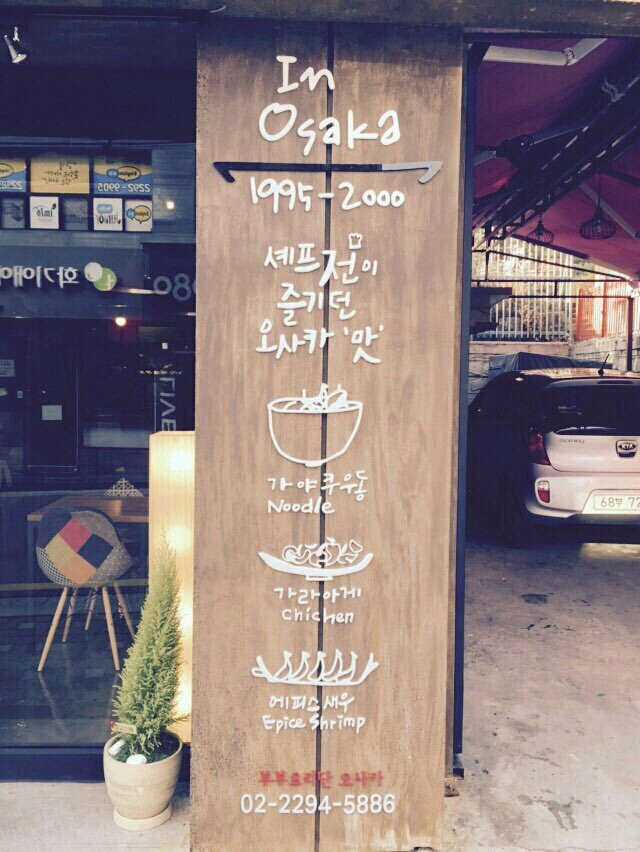 In
Osaka
1995-2000
셰프전이
즐기던
오사카 '맛'
가야쿠우동
Noodle
가라아게
Chichen
에피스새우
Epice Shrimp
부부요리단 오사카
02-2294-5886
2292-9905
KIA
MORNING
68부 72